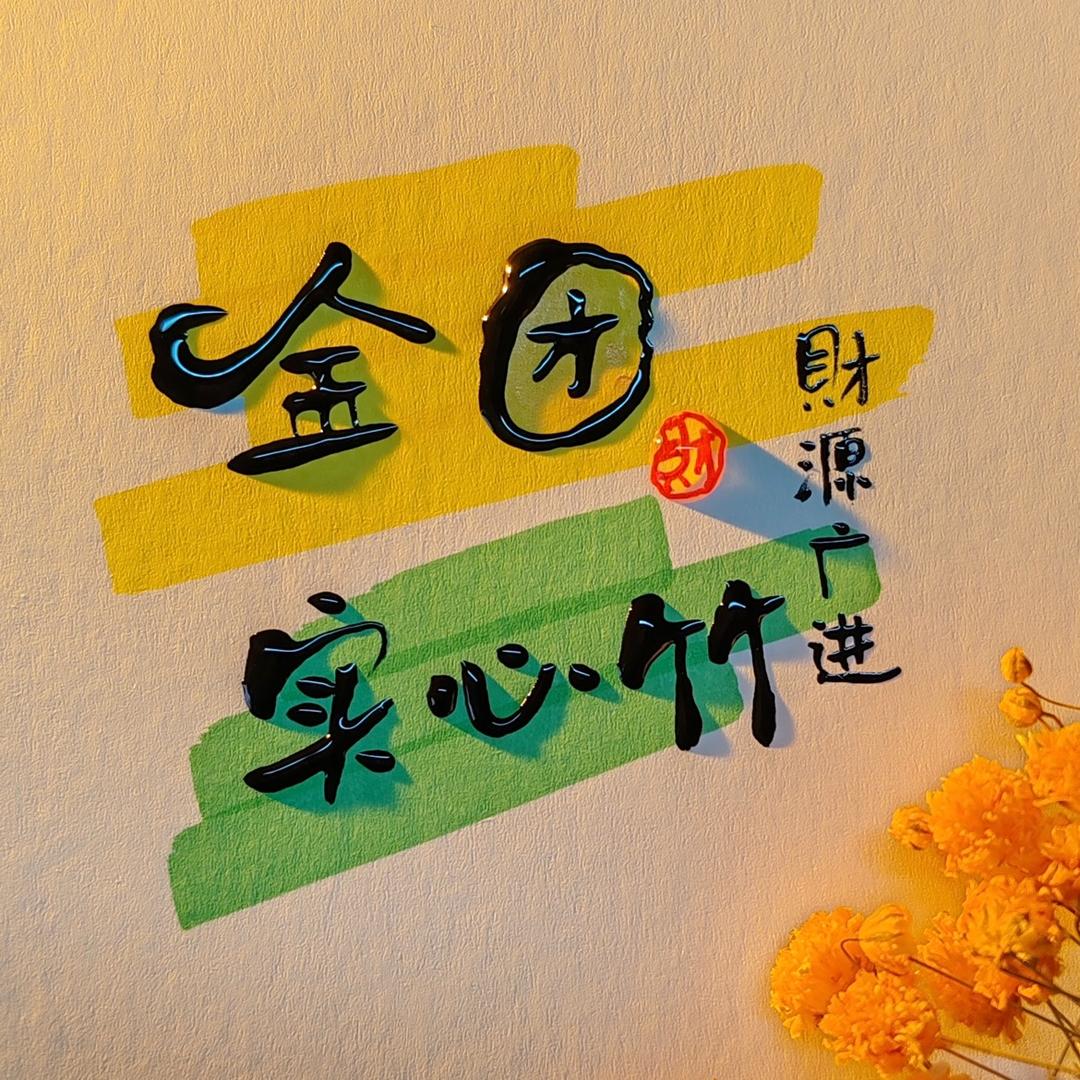 金团
实心竹
財源广进
财